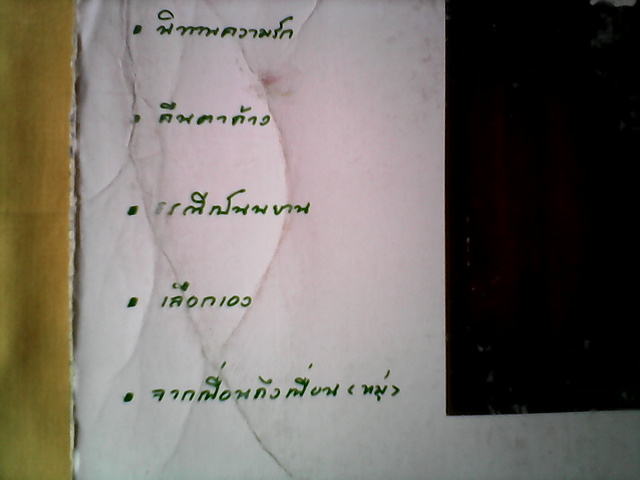 • นิทานความรัก
• ลืมตาค้าง
• ธรณีเป็นพยาน
• เลือกเอง
• จากเพื่อนถึงเพื่อน (หมู่)